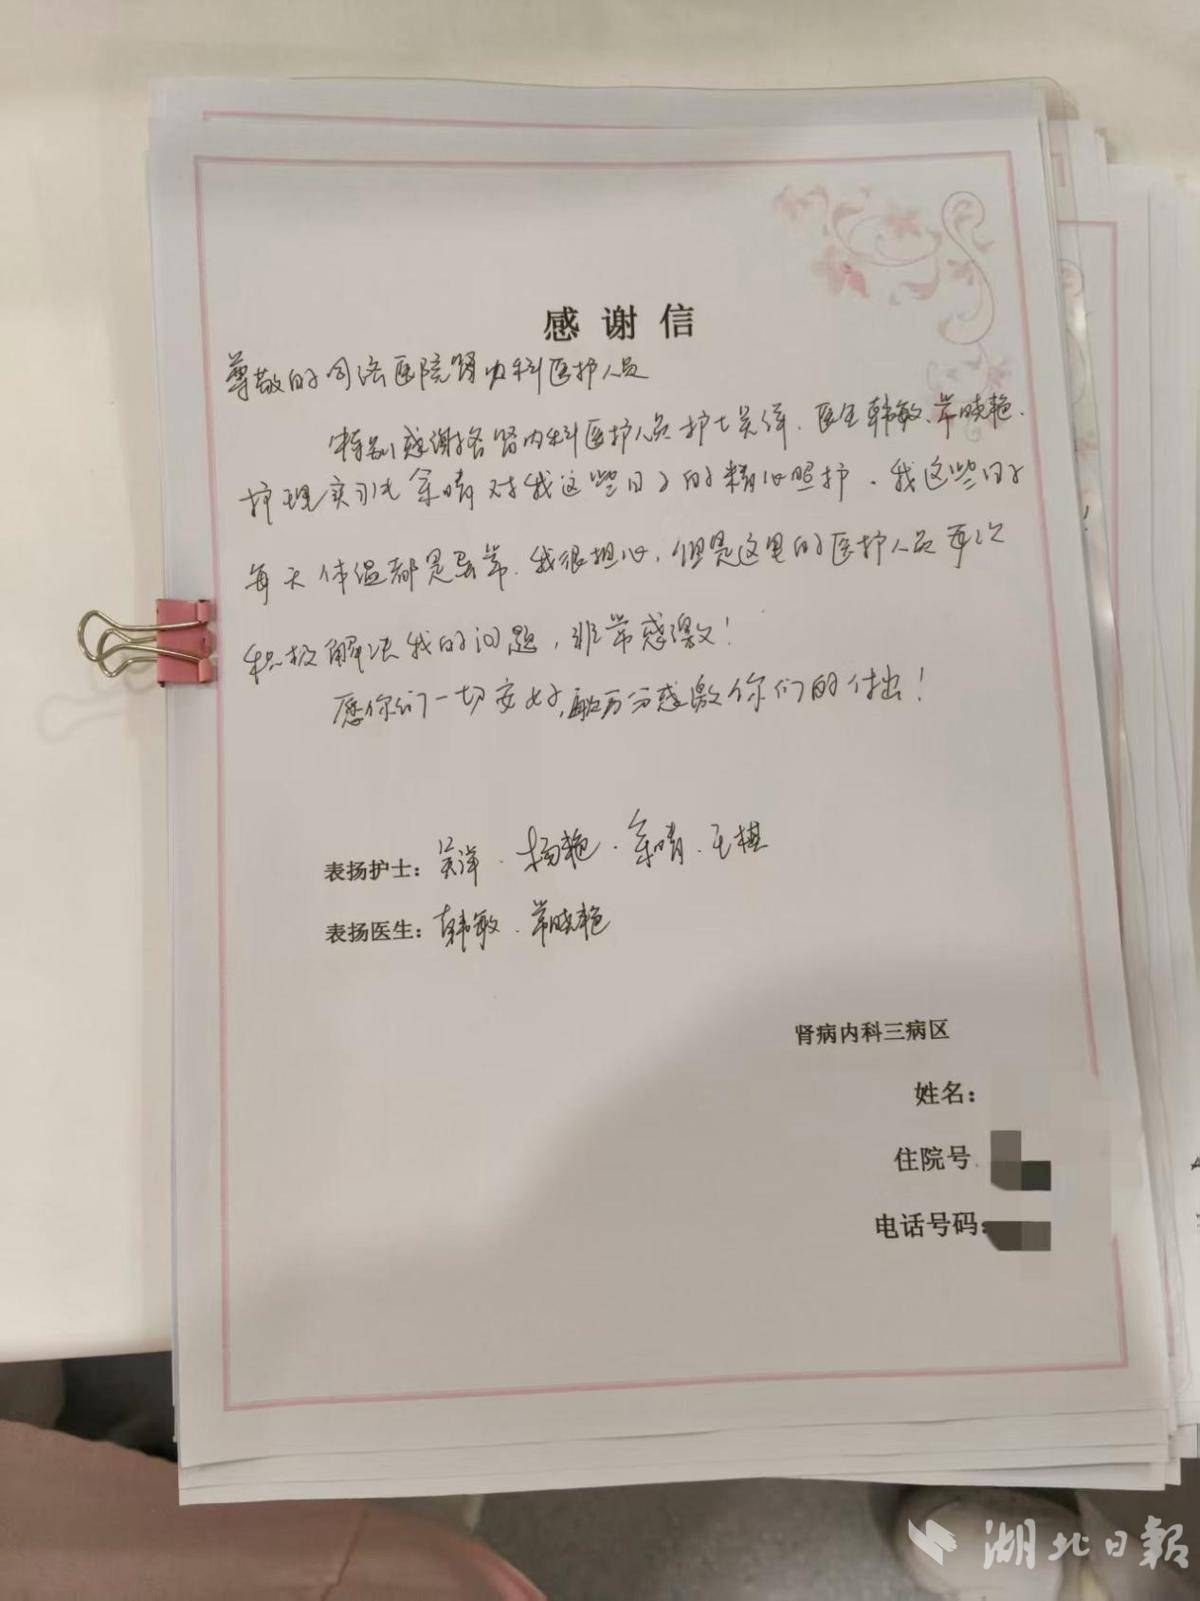 感谢信
尊敬的同济医院肾内科医护人员
特别感谢 肾内科医护人员护士吴洋、医生韩敏、常晓艳、
护理实习生余晴对我这些日子的精心照护。我这些日子
每天体温都是异常、我很担心,但是这里的医护人员每次
积极解决我的问题,非常感激!
愿你们一切安好, 万分感激你们的付出!
表扬护士:吴洋、杨艳、余晴、王棋
表扬医生:韩敏、常晓艳
肾病内科三病区
姓名:
住院号
电话号码:
湖北日報